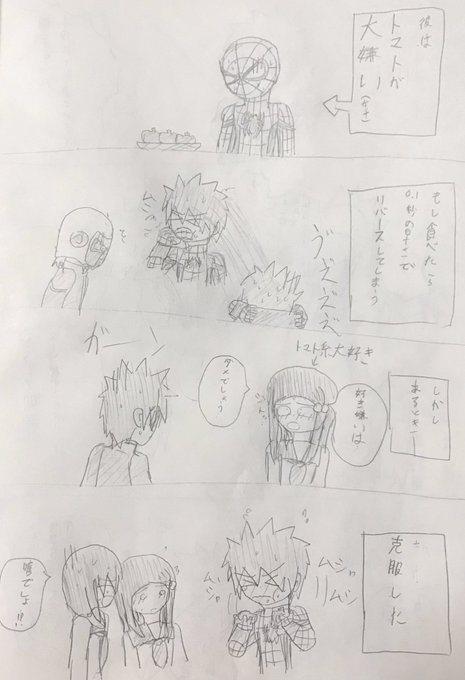 彼は
トマトが
大嫌い
もし食べたら
0.1秒の早さで
リバースしてしまう
ムシャ
ヴズズズ
しかし
あるとき…
トマト系大好き
好き嫌いは
ダメでしょう
ガーーン
克服した
ムシャ
ムシ
ムシャ
嘘でしょ!!?